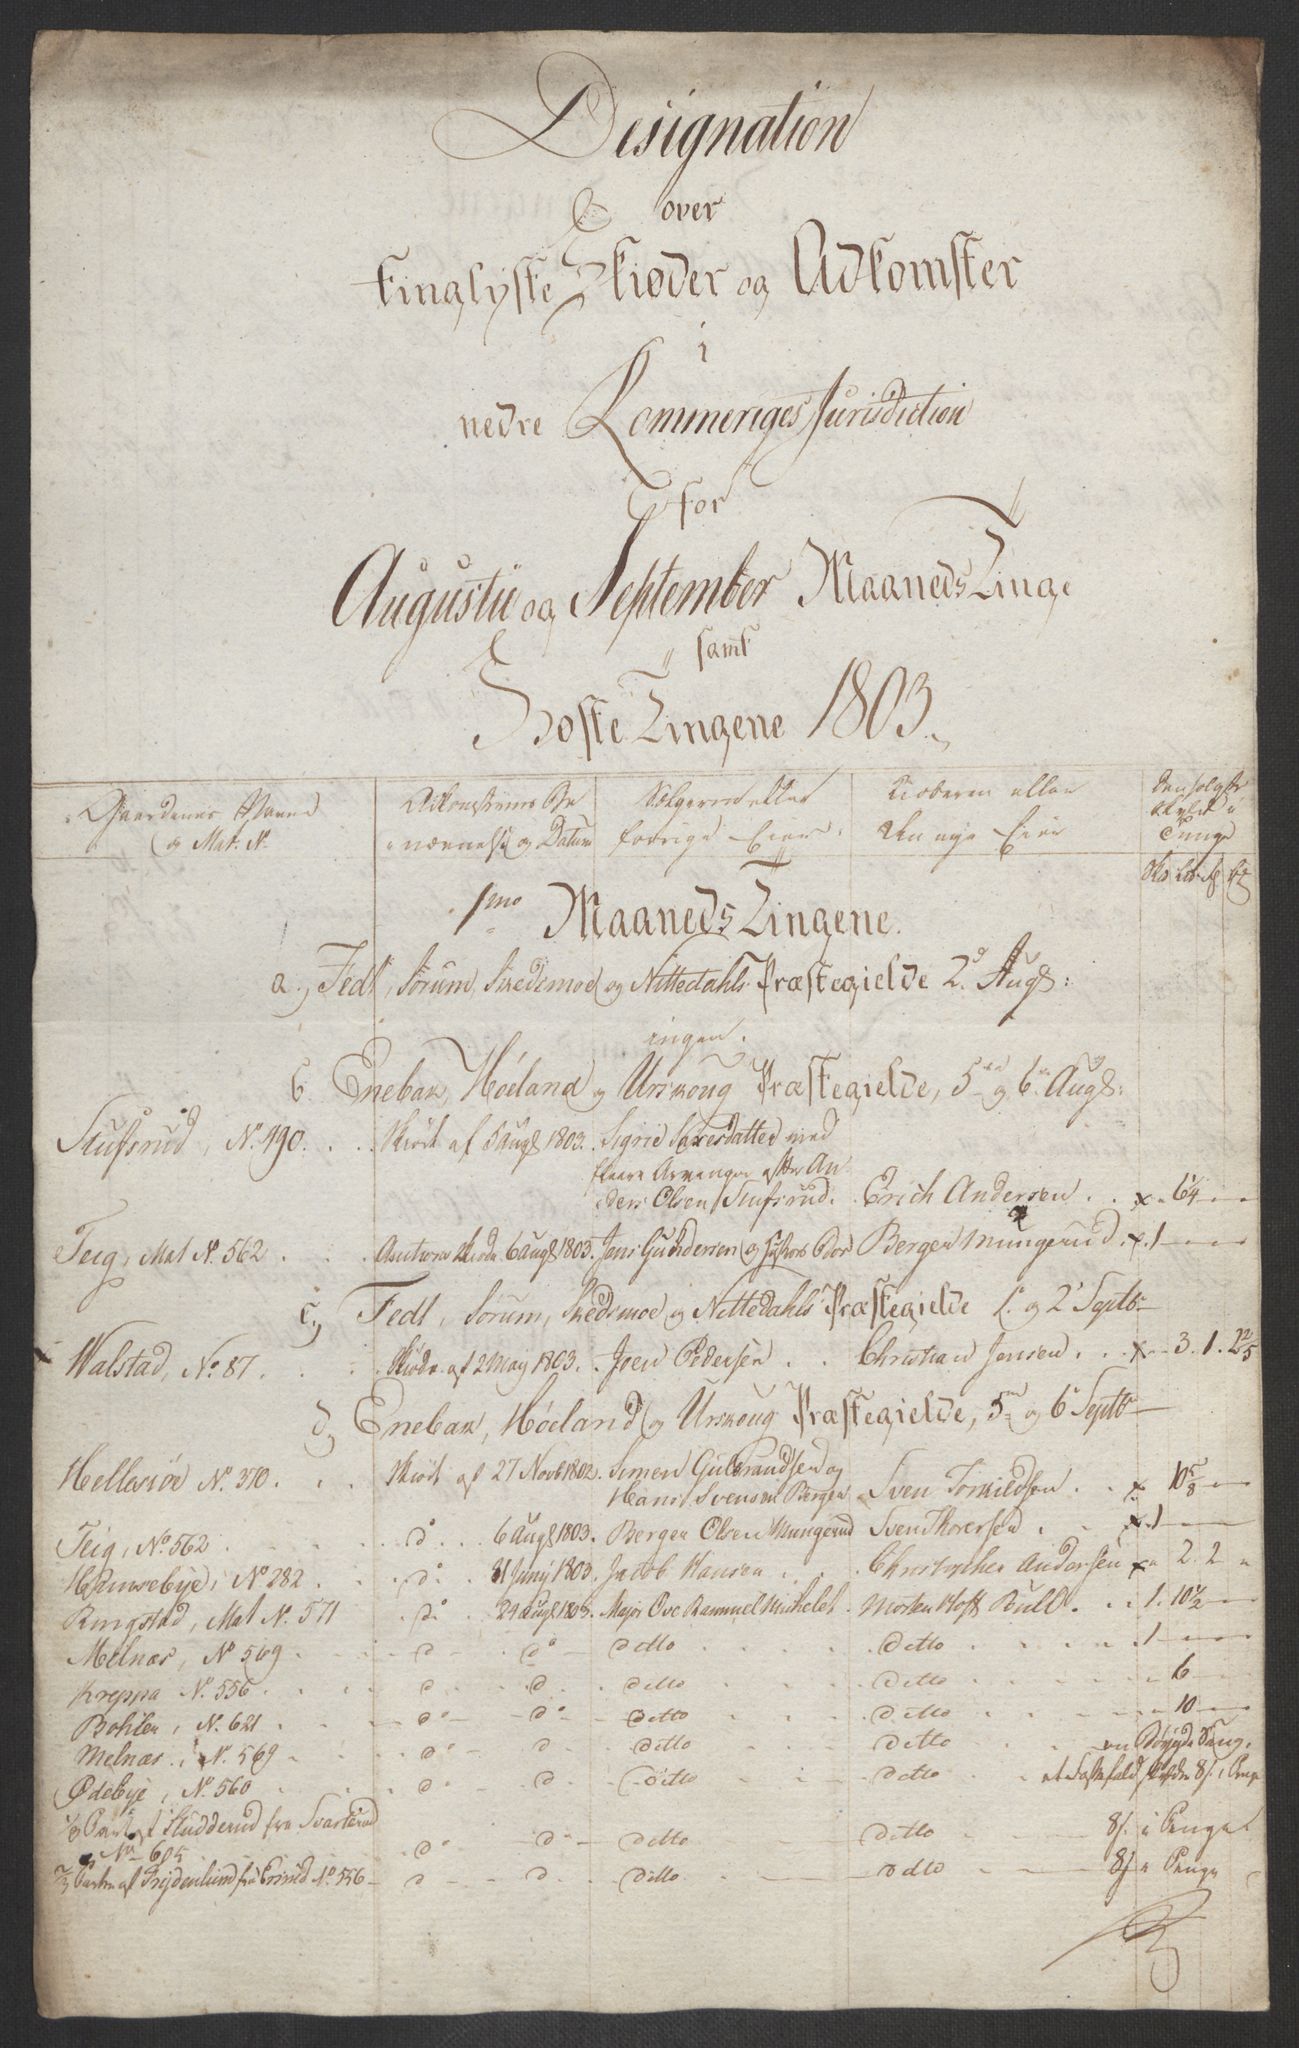 Designation
over
tinglyste Skiøder og Adkomster
i
nedre Rommeriges Jurisdiction
for
Augustii og September Maaneds Tinge
samt
Høste Tingene 1803.
Gaardenes Navne | Adkomstens Be | Sælgeren eller | Kiøberen eller | Den solgte
og Mat. No. | nævnelse og Datum | forrige Eier | den nye Eier | Skyld i
Tunge
1mo Maaneds Tingene.
a., Fedt, Sørum, Skedsmoe og Nittedahls Præstegielde 2d Augs:
ingen.
b. Enebak, Høeland og Urskoug Præstegielde, 5te og 6te Augs:
Stufsrud, No. 490. . . Skiöde af 5 Augs 1803. Sigrid Larsdatter med
fleere Arvinger efter An-
ders Olsen Stufsrud. Erich Andersen . . x . 6¼
Teig, Mat No. 562 . . . 6 Augs 1803. Jens Gundersen og Bergen Mungerud . x . 1
c., Fedt, Sørum, Skedsmoe og Nittedahls Præstegielde 1. og 2d Septb
Walstad, No. 87. . . . Skiöde af 2 May 1803. Joen Pedersen . . Christian Jensen . . x 3. 1. 2
d., Enebak, Høeland og Urskoug Præstegielde, 5te og 6te Septb
Hellesiøe No. 370 . . . Skiöde af 27 Novb 1802. Simen Gulbrandsen og
Hans Svensen Bergen Sven Torkildsen . . x . 10⅝
Teig, No. 562 . . . do . . . 6 Augs 1803. Bergen Olsen Mungerud Sven Thoresen . . x . 1
Hamsebye, No. 282 . . . do . 11 Juny 1803. Jacob Hansen . . Christopher Andersen x . 2. 2
Ringstad, Mat No. 571 . do 24 Augs 1803. Major Ove Rammel Michelet . Morten Hoft Bull . . 1. 10½
Melnæs, No. 569 . . . do do ditto . . . ditto . . . 1
Kreppa No. 556 . . . do do ditto . . . ditto . . . 6
Bohler, No. 621 . . . do do ditto . . . ditto . . . 10
Melnæs, No. 569 . . . do do ditto . . . ditto . . en Bøygde Saug.
Ødebye, No. 560 . . . do do ditto . . . ditto . . et Fossefald 8s. i Penge
⅛ Part af Studderud fra Svarterud
No. 605 do do ditto . . . ditto 8s. i Penge
⅔ Parten af Frydenlund fra No. 556 do do ditto ditto 8s. i Penge